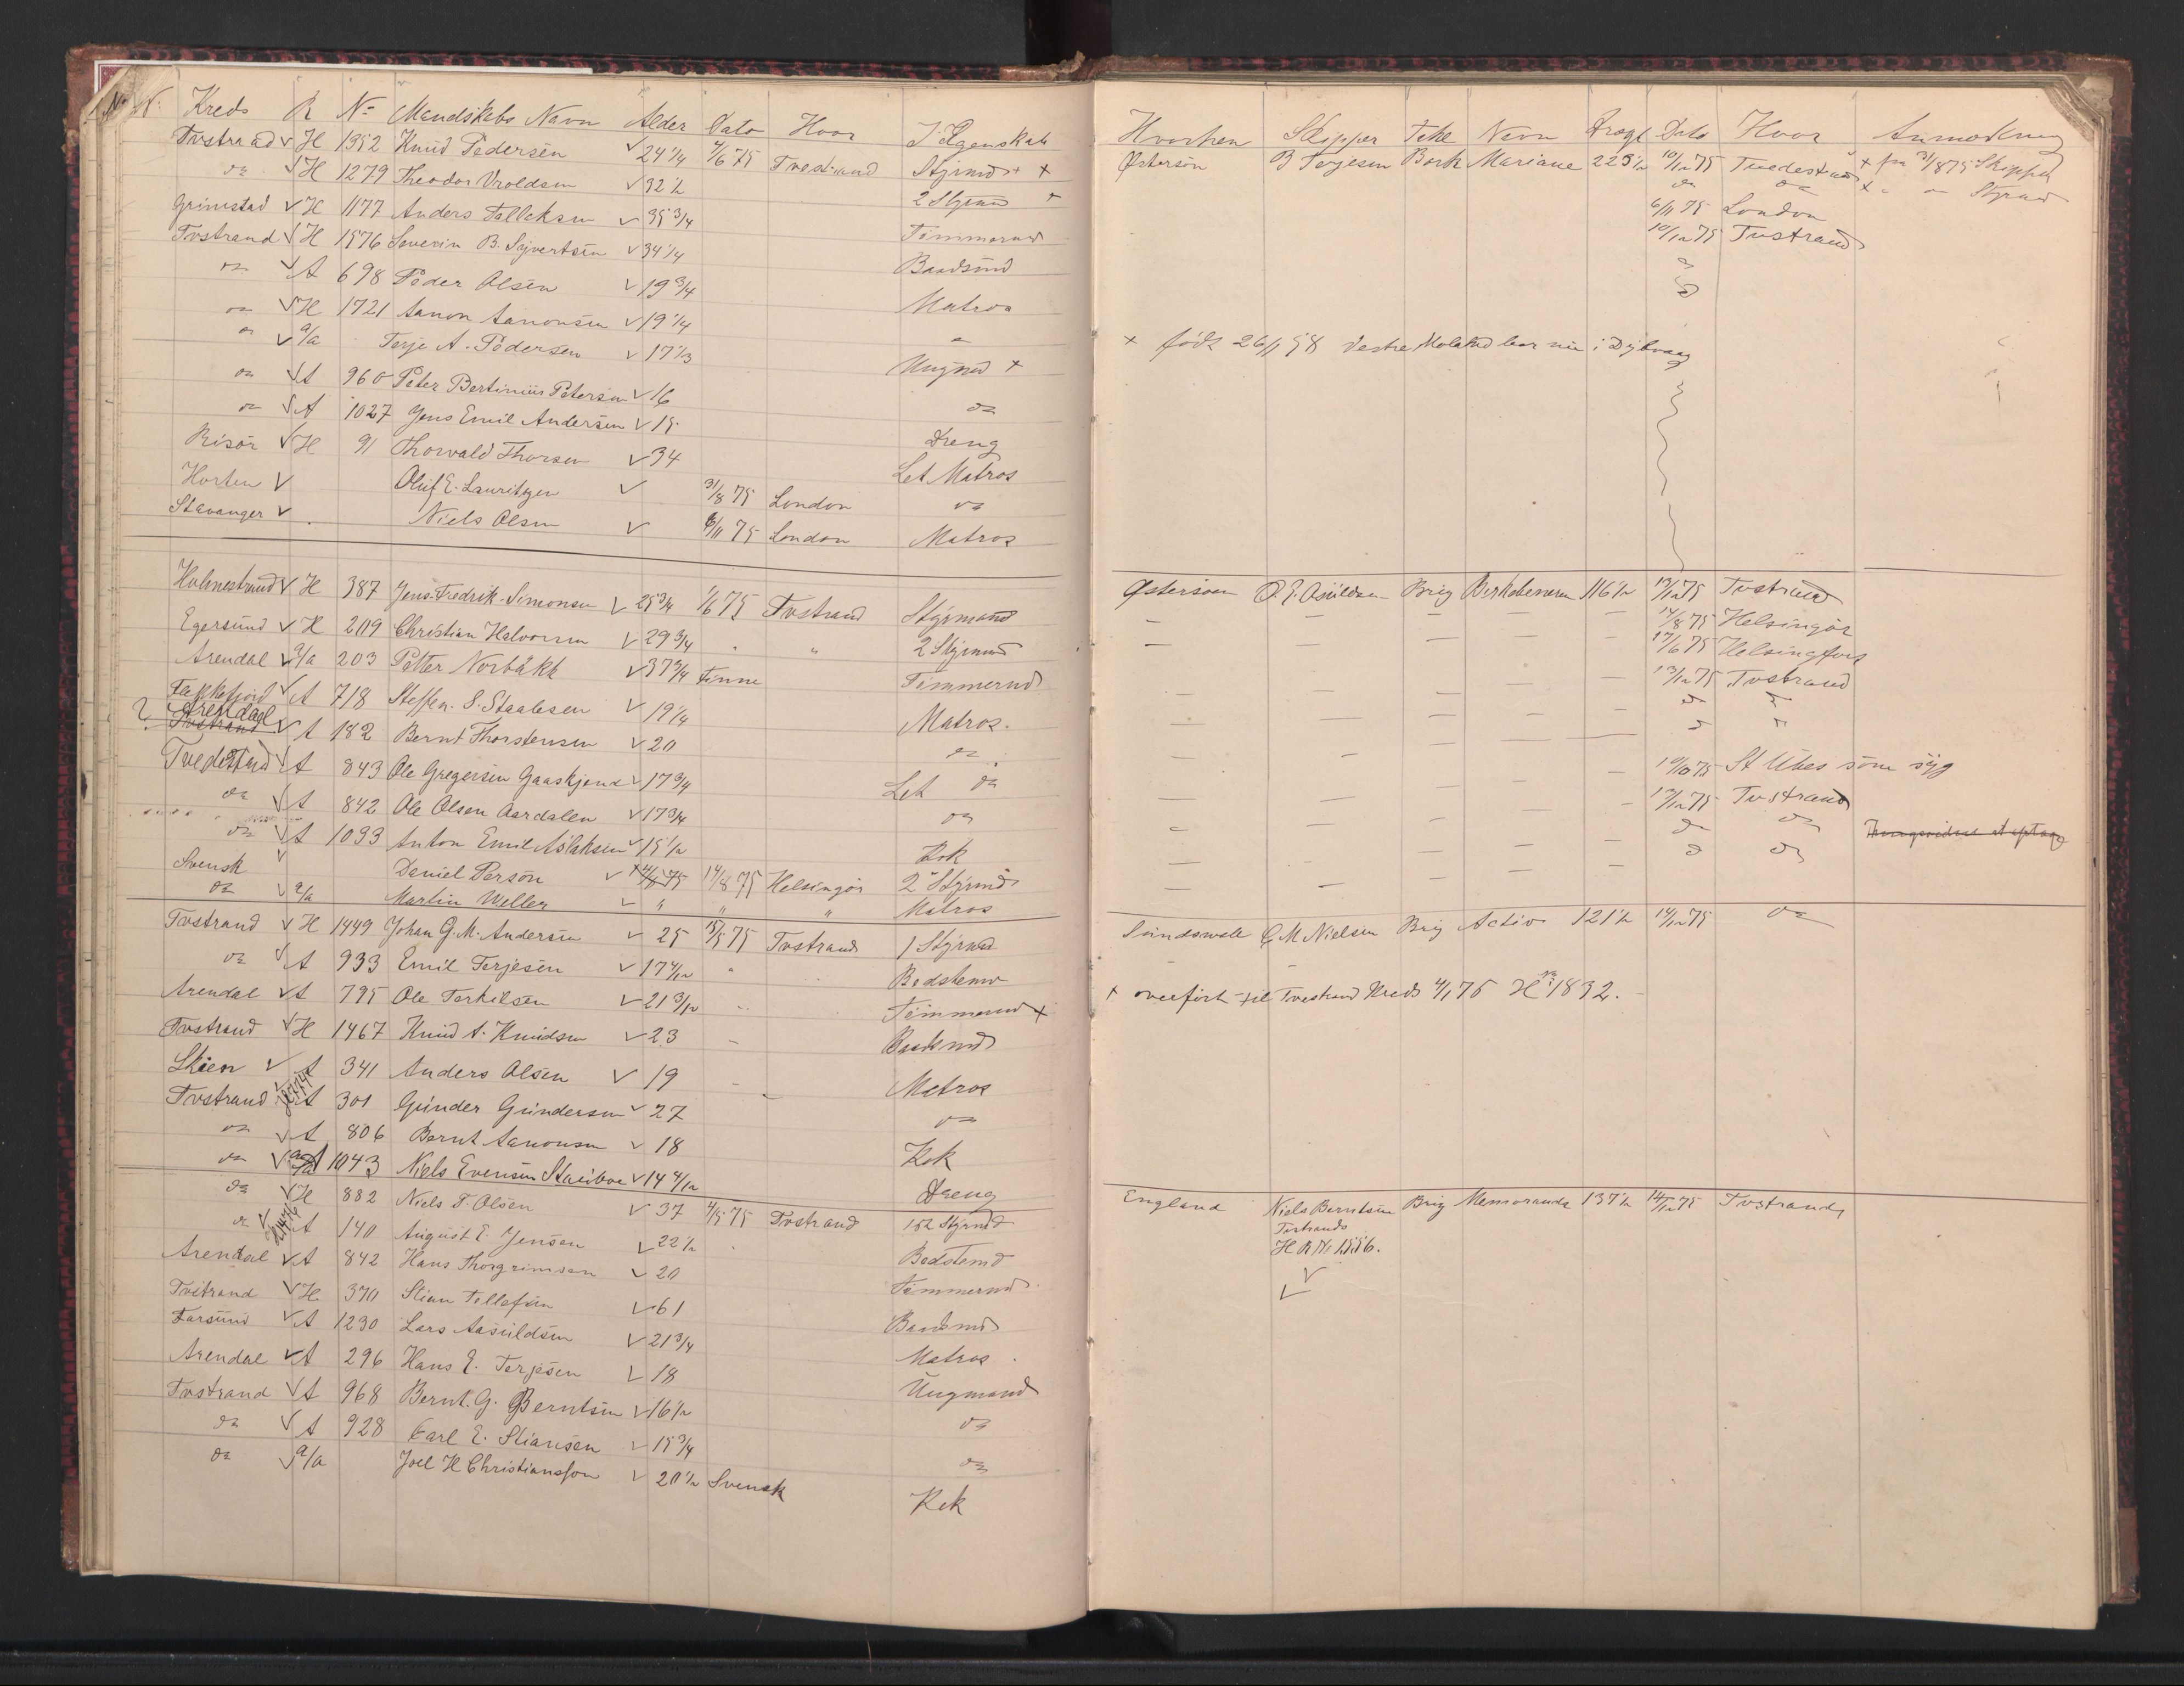 Nr. Kreds R No Mandskabs Navn Alder Dato Hvor I Egenskab
Tvstrand H 1352 Knud Pedersen 24 1/4 4/6 75 Tvestrand Styrmd + +
do H 1279 Theodor Vroldsen 32 1/2 2 Styrmd
Grimstad H 1177 Anders Tallaksen 35 3/4 Tømmermd
Tvstrand H 1576 Severin B. Sivertsen 34 1/4 Baadsmd
do A 698 Peder Olsen 19 3/4 Matros
do H 1721 Aanon Aanonsen 19 1/4 do
do a/a Terje A. Pedersen 17 1/3 Ungmd +
do A 960 Peter Bertinius Petersen 16 do
do A 1027 Jens Emil Andersen 15 Dreng
Risør H 91 Thorvald Thorsen 34 Let Matros
Horten Oluf E. Lauritzen 31/8 75 London do
Stavanger Niels Olsen 6/11 75 London Matros
Holmestrand H 387 Jens Fredrik Simonsen 25 3/4 1/6 75 Tvstrand Styrmand
Egersund H 209 Christian Halvorsen 29 3/4 " " 2 Styrmd
Arendal a/a 203 Petter Norbäkk 37 3/4 Finne Tømmermd
Flekkefjord A 718 Steffen S. Staalesen 19 1/4 Matros
? Arendal Tvstrand A 182 Bernt Thorstensen 20 do
Tvedestrand A 843 Ole Gregersen Gaaskjend 17 3/4 Let do
do A 842 Ole Olsen Aardalen 17 3/4 do
do A 1033 Anton Emil Aslaksen 15 1/2 Kok
Svensk Daniel Person 14/8 75 14/8 75 Helsingør 2 Styrmd
do a/a Martin Weller " " " Matros
Tvstrand H 1449 Johan G. M. Andersen 25 15/5 75 Tvstrand 1 Styrmd
do A 933 Emil Terjesen 17 4/12 " Bedstemd
Arendal A 795 Ole Terkilsen 21 3/12 Tømmermd +
Tvstrand H 1467 Knud A. Knudsen 23 Baadsmd
Skien A 341 Anders Olsen 19 Matros
Tvstrand A 301 Gunder Gundersen 27 do
do A 806 Bernt Aanonsen 18 Kok
do a/a 1043 Niels Evensen Stauboe 14 4/12 Dreng
do H 882 Niels T. Olsen 37 4/5 75 Tvstrand 1ste Styrmd
do A 140 August E. Jensen 22 1/2 Bedstemd
Arendal A 842 Hans Thorgrimsen 20 Tømmermd
Tvstrand H 370 Stian Tellefsen 61 Baadsmd
Farsund A 1230 Lars Aasuldsen 21 3/4 Matros
Arendal A 296 Hans E. Terjesen 18 Ungmand
Tvstrand A 968 Bernt G. Berntsen 16 1/2 do
do A 928 Carl E. Stiansen 15 3/4 do
do a/a Joel H Christiansson 20 1/2 Svensk Kok
Hvorhen Skipper Take Navn Drægt Dato Hvor Anmerkning
Østersøn B Terjesen Bark Mariane 225 1/2 10/12 75 Tvedestrand + fra 31/8 75 Skipper
do do + " do Styrmd
6/11 75 London
10/12 75 Tvstrand
+ født 26/1 58 Vestre Moland bor nu i Dybvaag
Østersøen O. E. Asuldsen Brig Birkebeineren 116 1/2 13/12 75 Tvstrand
14/8 75 Helsingør
17/6 75 Helsingfors
13/12 75 Tvstrand
do do
do do
10/10 75 St Ubes som syg
13/12 75 Tvstrand
do do
do do
Sundswall G. M Nielsen Brig Activ 121 1/2 14/12 75 do
+ overført til Tvestrand Kreds 4/1 76 H No 1832.
England Niels Berntsen Brig Memoranda 137 1/2 14/12 75 Tvstrand
Tvstrands
H R No 1556.